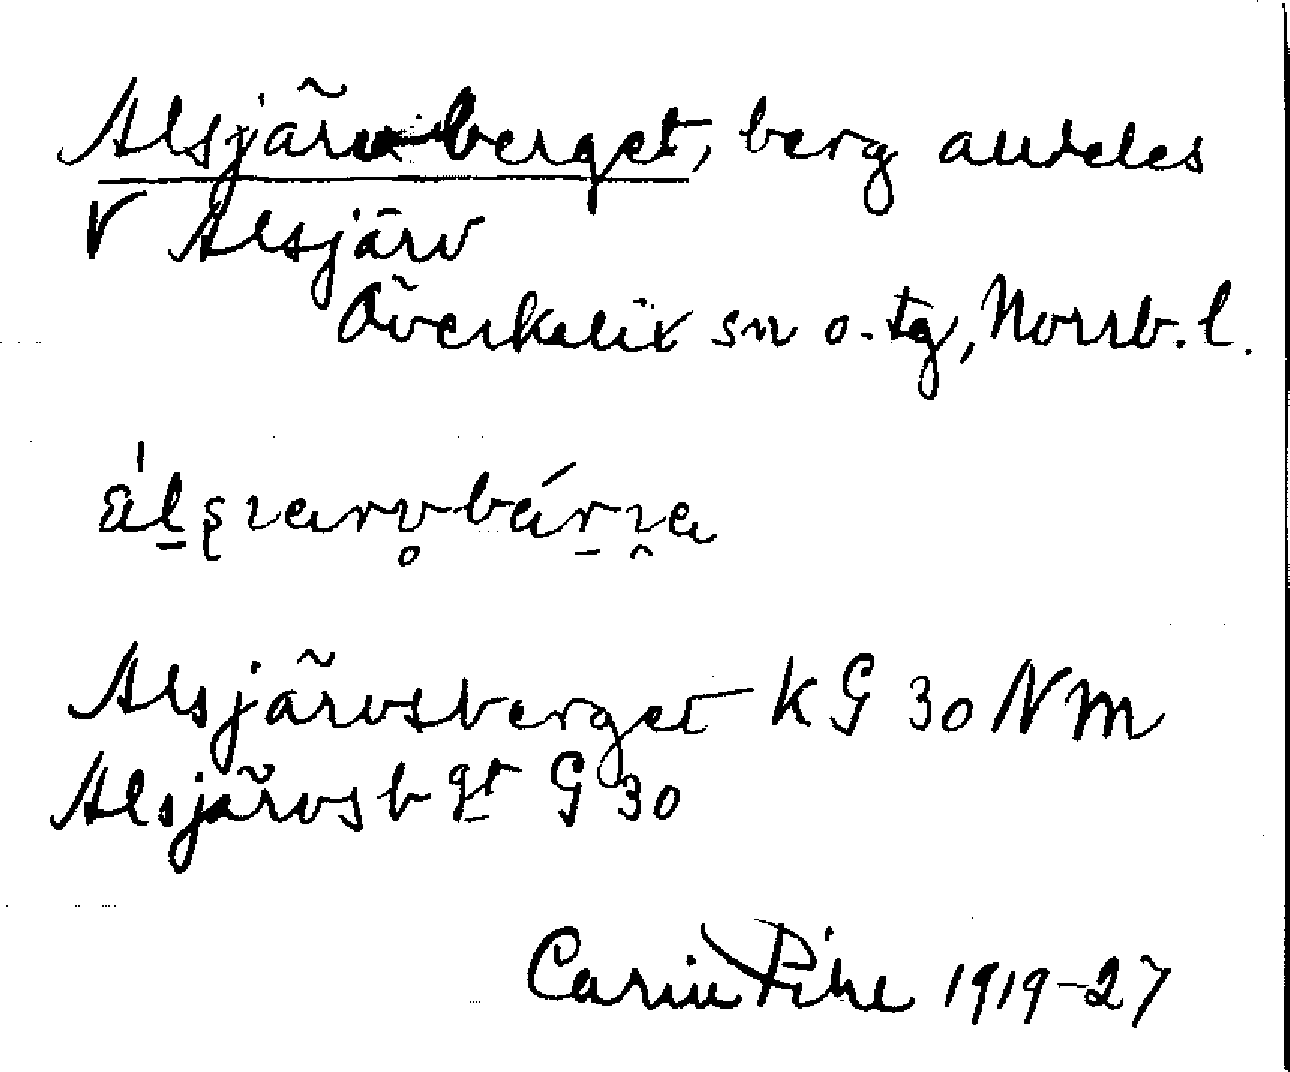 Alsjärvberget, berg alldeles
V Alsjärv
Överkalix sn o. tg, Norrb. l.
Alsjärvsberget KG 30 NM
Alsjärvsbgt G 30
Carin Pihl 1919-27